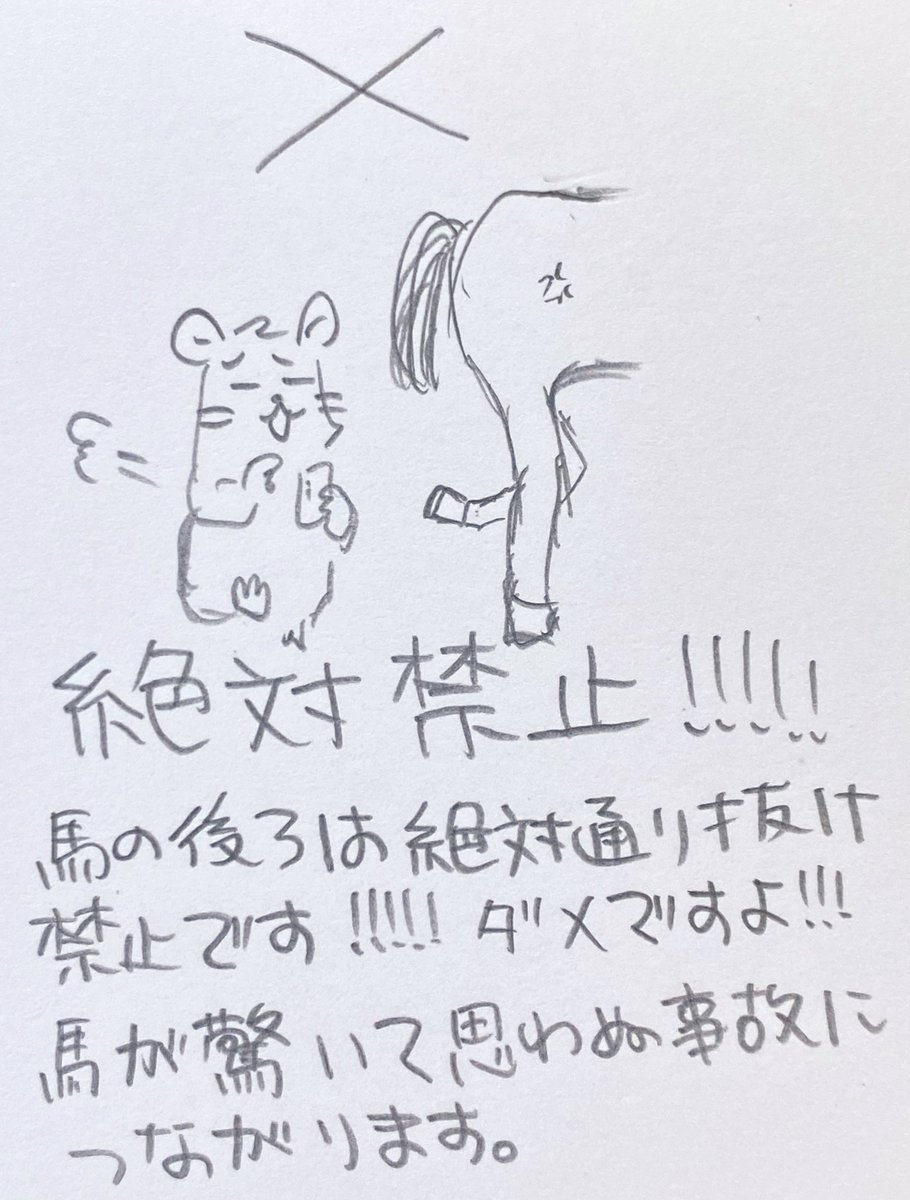 絶対禁止!!!!!
馬の後ろは絶対通りす抜け
禁止です!!!!! ダメですよ!!!
馬が驚いて思わぬ事故に
つながります。